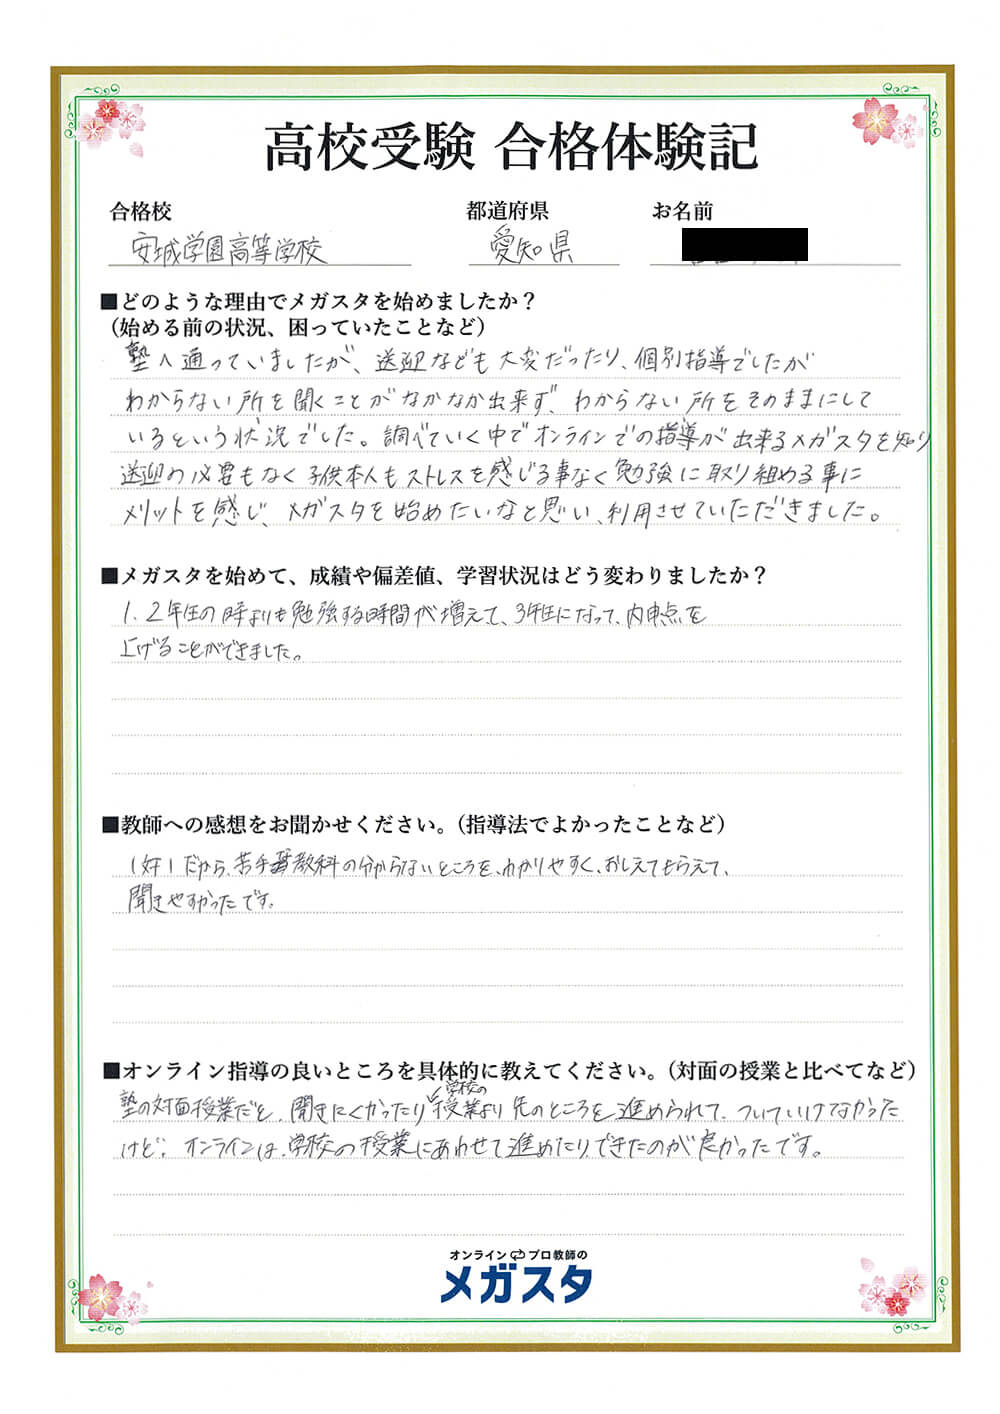 高校受験 合格体験記
合格校 都道府県 お名前
安城学園高等学校 愛知県
■どのような理由でメガスタを始めましたか？
（始める前の状況、困っていたことなど）
塾へ通っていましたが、送迎なども大変だったり、個別指導でしたが
わからない所を聞くことがなかなか出来ず、わからない所をそのままにして
いるという状況でした。調べていく中でオンラインでの指導が出来るメガスタを知り
送迎の必要もなく子供本人もストレスを感じる事なく勉強に取り組める事に
メリットを感じ、メガスタを始めたいなと思い、利用させていただきました。
■メガスタを始めて、成績や偏差値、学習状況はどう変わりましたか？
1、2年生の時よりも勉強する時間が増えて、3年生になって、内申点を
上げることができました。
■教師への感想をお聞かせください。（指導法でよかったことなど）
1対1だから、苦手教科の分からないところを、わかりやすく、おしえてもらえて、
聞きやすかったです。
■オンライン指導の良いところを具体的に教えてください。（対面の授業と比べてなど）
塾の対面授業だと、聞きにくかったり学校の授業より先のところを進められて、ついていけなかった
けど、オンラインは、学校の授業にあわせて進めたりできたのが良かったです。
オンライン プロ教師の
メガスタ